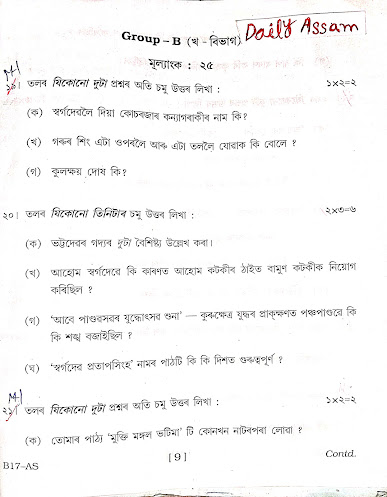 Group – B (খ - বিভাগ)
Daily Assam
মূল্যাংক : ২৫
১৯। তলৰ যিকোনো দুটা প্ৰশ্নৰ অতি চমু উত্তৰ লিখা : ১×২=২
(ক) স্বৰ্গদেৱলৈ দিয়া কোচৰজাৰ কন্যাগৰাকীৰ নাম কি?
(খ) গৰুৰ শিং এটা ওপৰলৈ আৰু এটা তললৈ যোৱাক কি বোলে ?
(গ) কুলক্ষয় দোষ কি?
২০। তলৰ যিকোনো তিনিটাৰ চমু উত্তৰ লিখা : ২×৩=৬
(ক) ভট্টদেৱৰ গদ্যৰ দুটা বৈশিষ্ট্য উল্লেখ কৰা।
(খ) আহোম স্বৰ্গদেৱে কি কাৰণত আহোম কটকীৰ ঠাইত বামুণ কটকীক নিয়োগ
কৰিছিল ?
(গ) ‘আবে পাণ্ডৱসৱৰ যুদ্ধোৎসৱ শুনা’ — কুৰুক্ষেত্ৰ যুদ্ধৰ প্ৰাক্‌ক্ষণত পঞ্চপাণ্ডৱে কি
কি শঙ্খ বজাইছিল ?
(ঘ) ‘স্বৰ্গদেৱ প্ৰতাপসিংহ’ নামৰ পাঠটি কি কি দিশত গুৰুত্বপূৰ্ণ ?
২১। তলৰ যিকোনো দুটা প্ৰশ্নৰ অতি চমু উত্তৰ লিখা : ১×২=২
(ক) তোমাৰ পাঠ্য ‘মুক্তি মঙ্গল ভটিমা’ টি কোনখন নাটৰপৰা লোৱা ?
B17–AS [ 9 ] Contd.